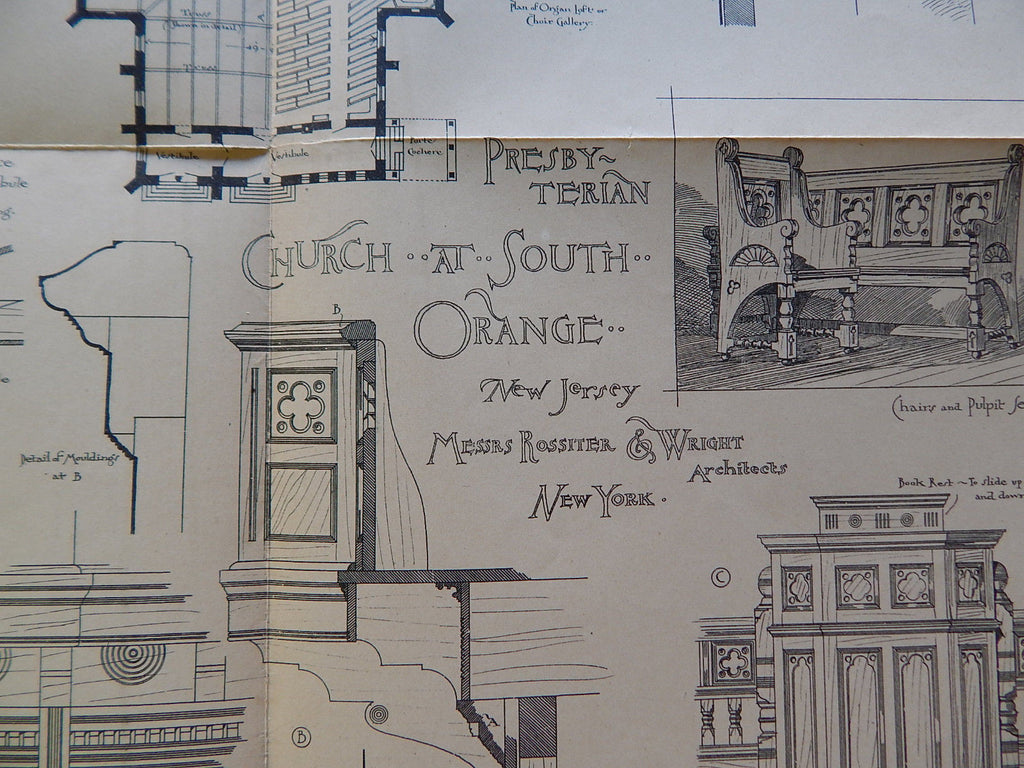 Plan of Organ Loft or
Choir Gallery.
Truss
(Shown in detail)
Truss
Vestibule
Vestibule
Porte
Cochere
PRESBY~
TERIAN
CHURCH ·· AT ·· SOUTH ··
ORANGE ··
New Jersey
MESSRS ROSSITER & WRIGHT
Architects
NEW YORK ·
B
Detail of Mouldings
at B
B
Chairs and Pulpit Se
Book Rest ~ To slide up
and down
C